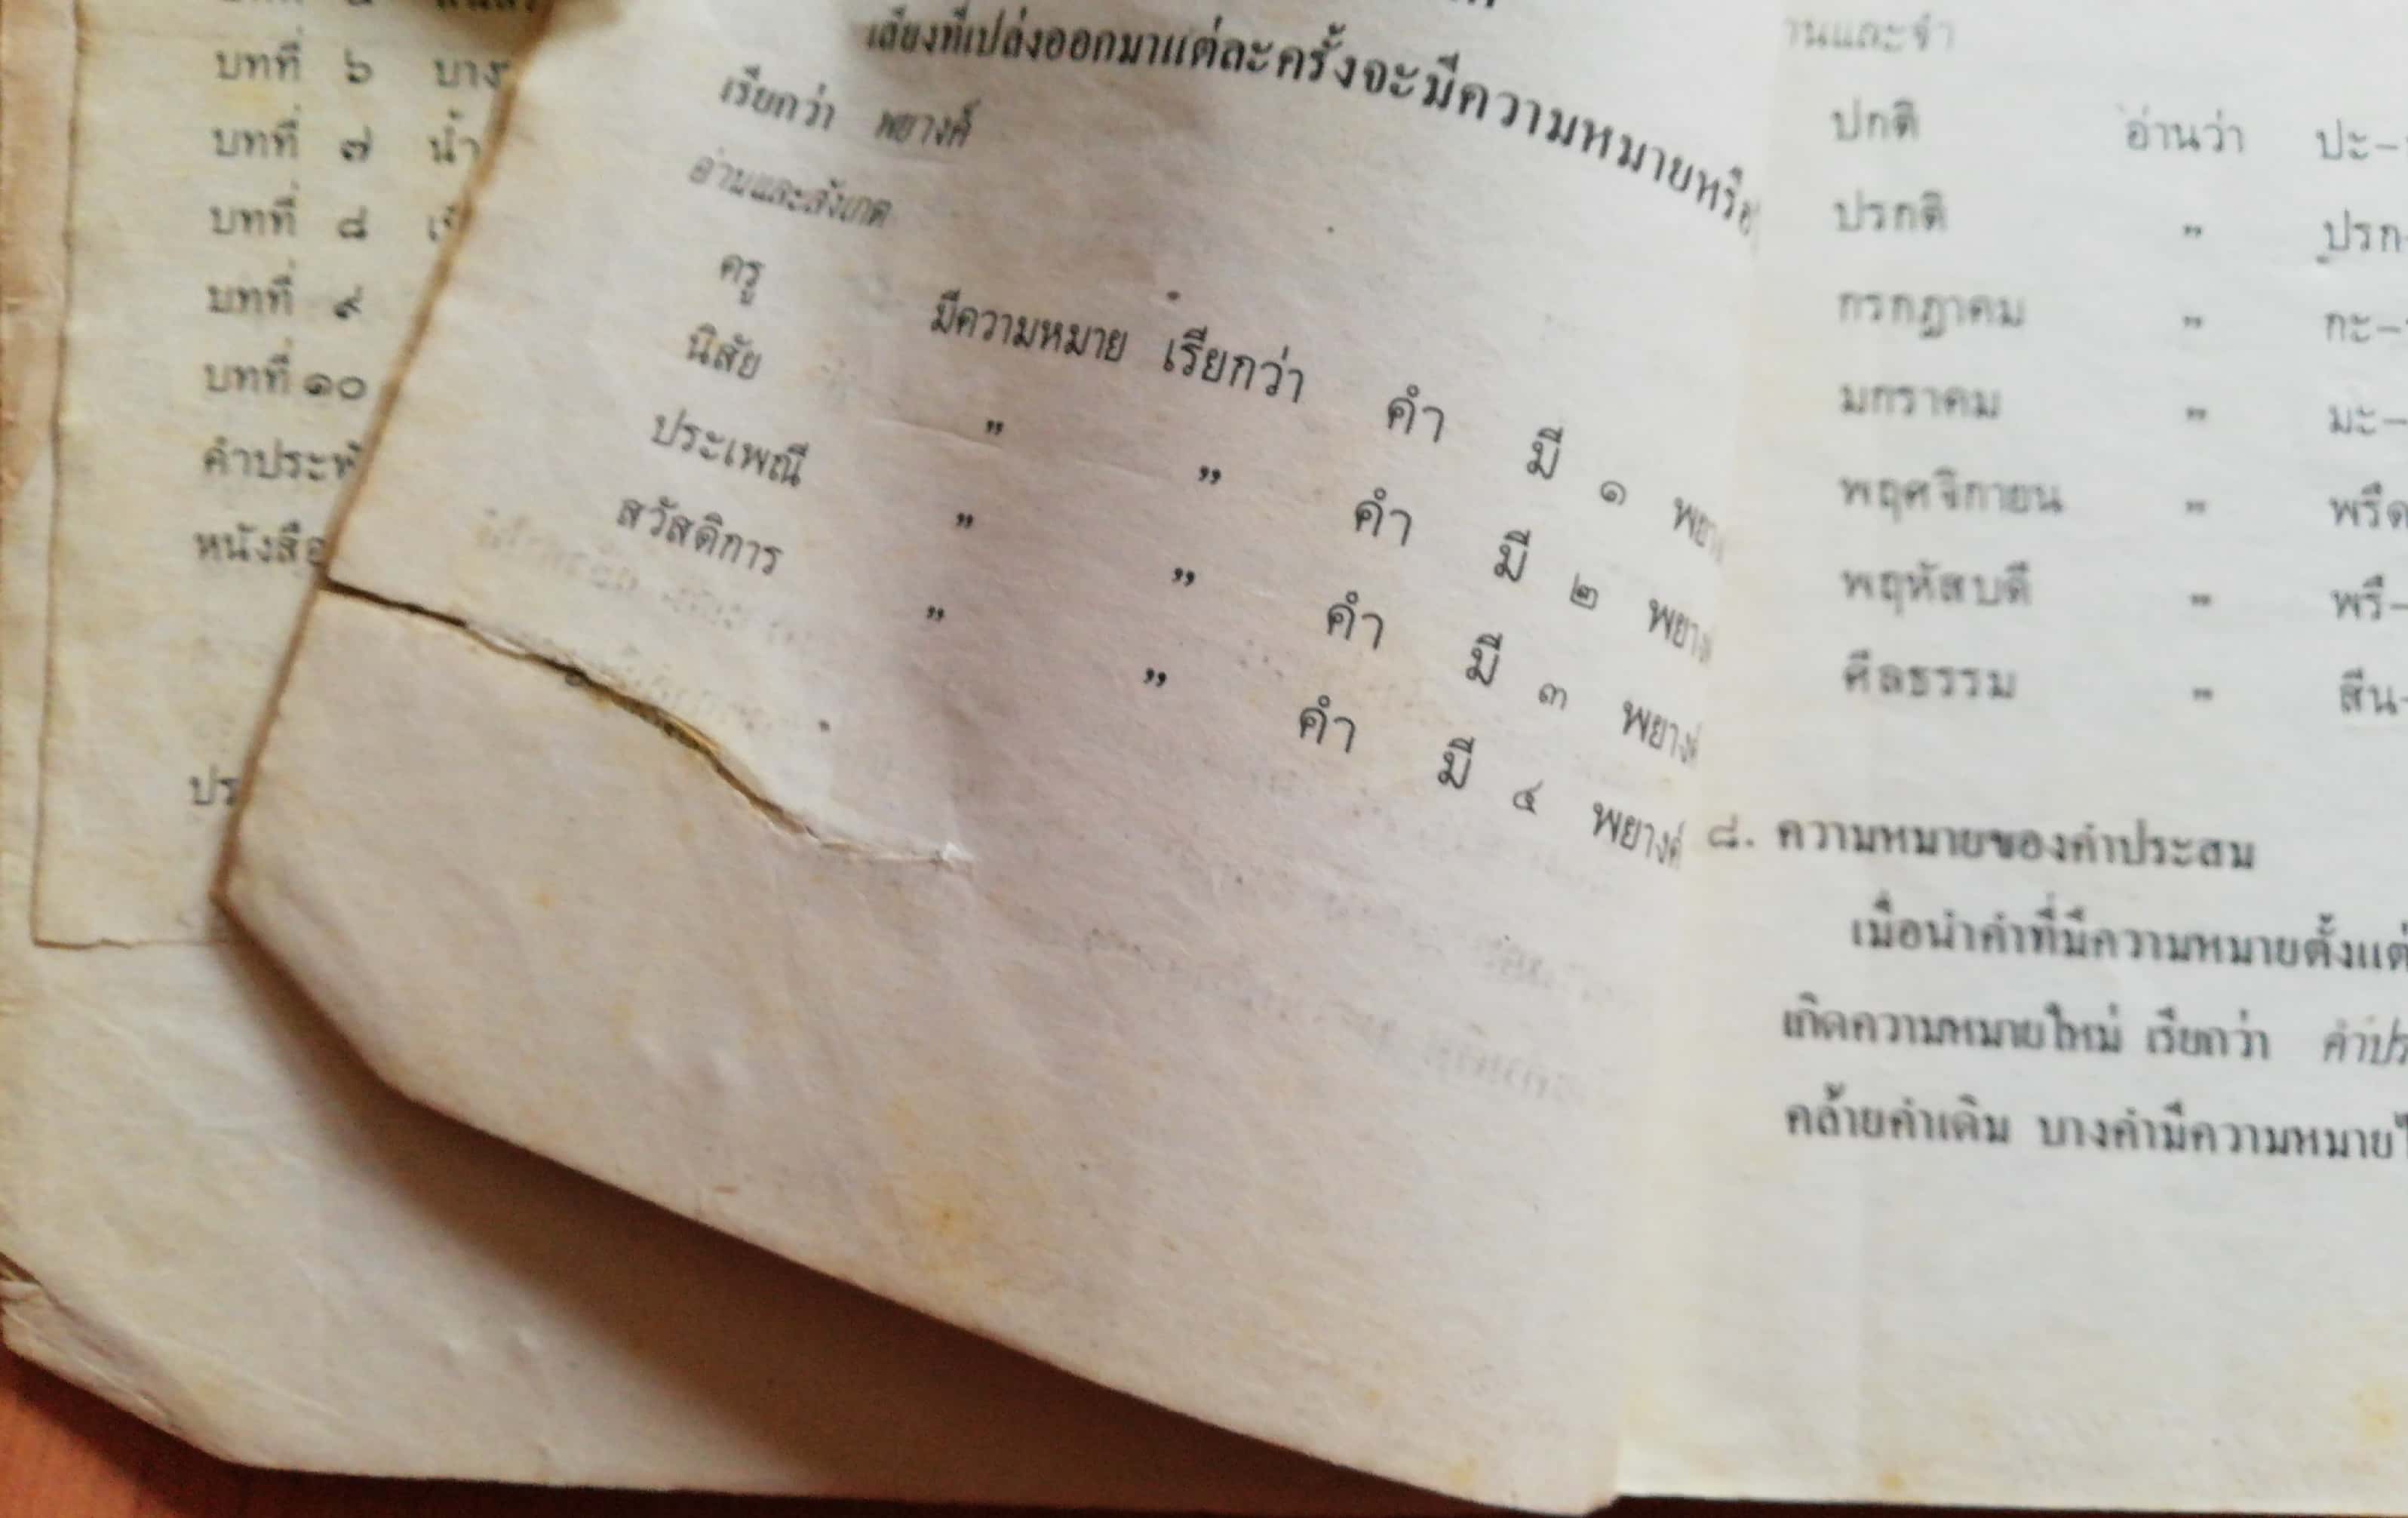 บทที่ ๖
บทที่ ๗ น้ำ
บทที่ ๘
บทที่ ๙
บทที่ ๑๐
เสียงที่เปล่งออกมาแต่ละครั้งจะมีความหมายหรือ
เรียกว่า พยางค์
อ่านและสังเกต
ครู มีความหมาย เรียกว่า คำ มี ๑
นิสัย " " คำ มี ๒
ประเพณี " " คำ มี ๓
สวัสดิการ " " คำ มี ๔ พยางค์
ปกติ อ่านว่า ปะ-
ปรกติ " ปรก-
กรกฎาคม " กะ-
มกราคม " มะ-
พฤศจิกายน " พรึด
พฤหัสบดี " พรึ-
ศีลธรรม " สีน-
๘. ความหมายของคำประสม
เมื่อนำคำที่มีความหมายตั้งแต่
เกิดความหมายใหม่ เรียกว่า
คล้ายคำเดิม บางคำมีความหมาย